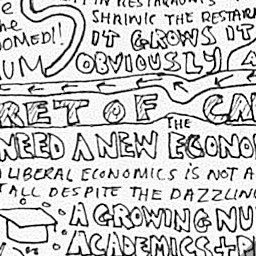 IT IN RESTAURANTS
e SHRINK THE RESTAUR
the IT GROWS IT
OMED!!
UM OBVIOUSLY A
RET OF CA
THE
NEED A NEW ECONO
LIBERAL ECONOMICS IS NOT A
ALL DESPITE THE DAZZLING
A GROWING NU
ACADEMICS + P